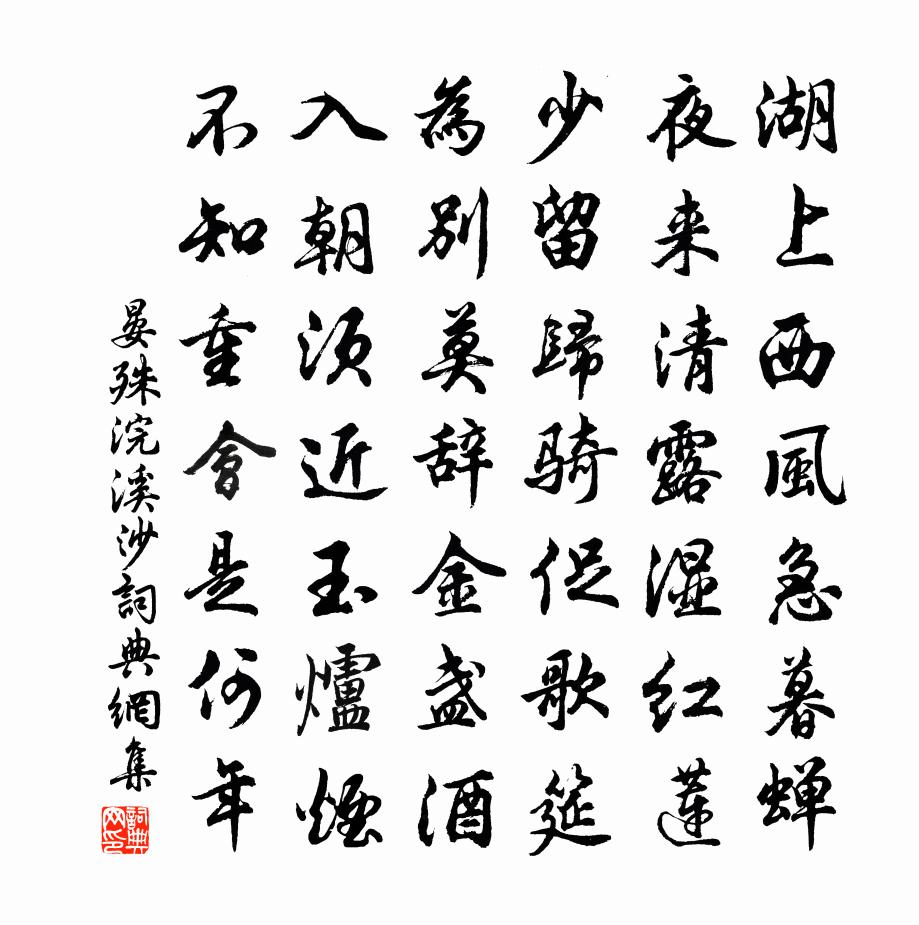 湖上西風急暮蝉
夜来清露湿红蓮
少留歸骑促歌筵
為别莫辞金盏酒
入朝须近玉爐煙
不知重會是何年
晏殊浣溪沙詞典網集
詞典网印